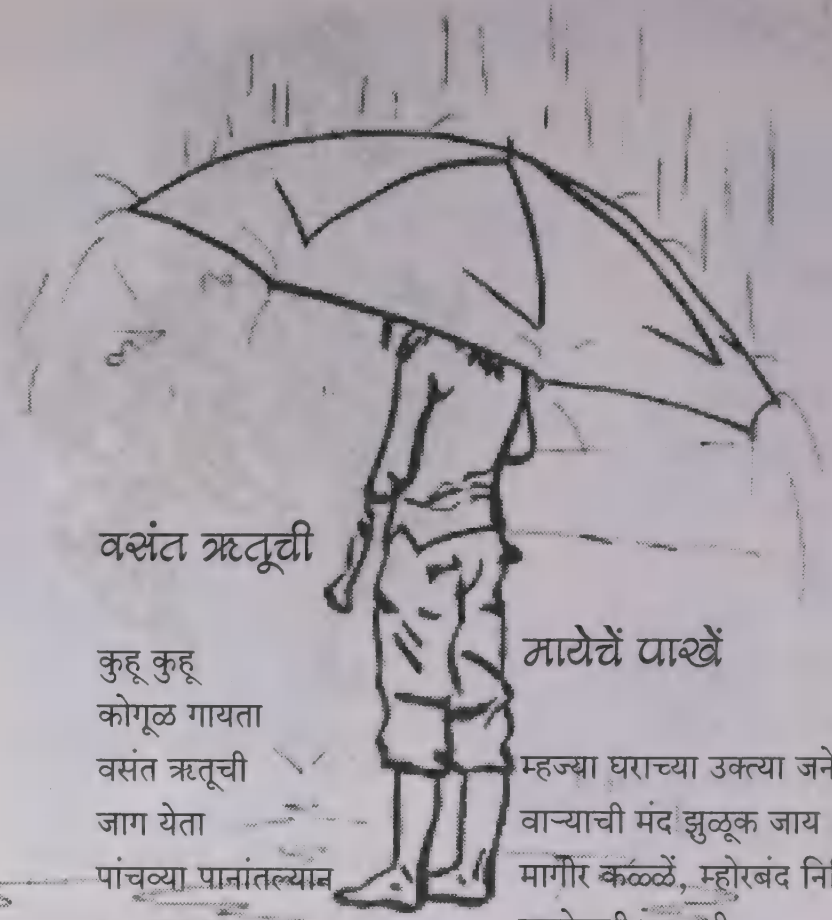 वसंत ऋतूची
कुहू कुहू
कोगूळ गायता
वसंत ऋतूची
जाग येता
पांचव्या पानांतल्यान
मायेचें पाखें
म्हज्या घराच्या उक्त्या जने
वाऱ्याची मंद झुळूक जाय
मागीर कळ्ळें, म्होरबंद नि